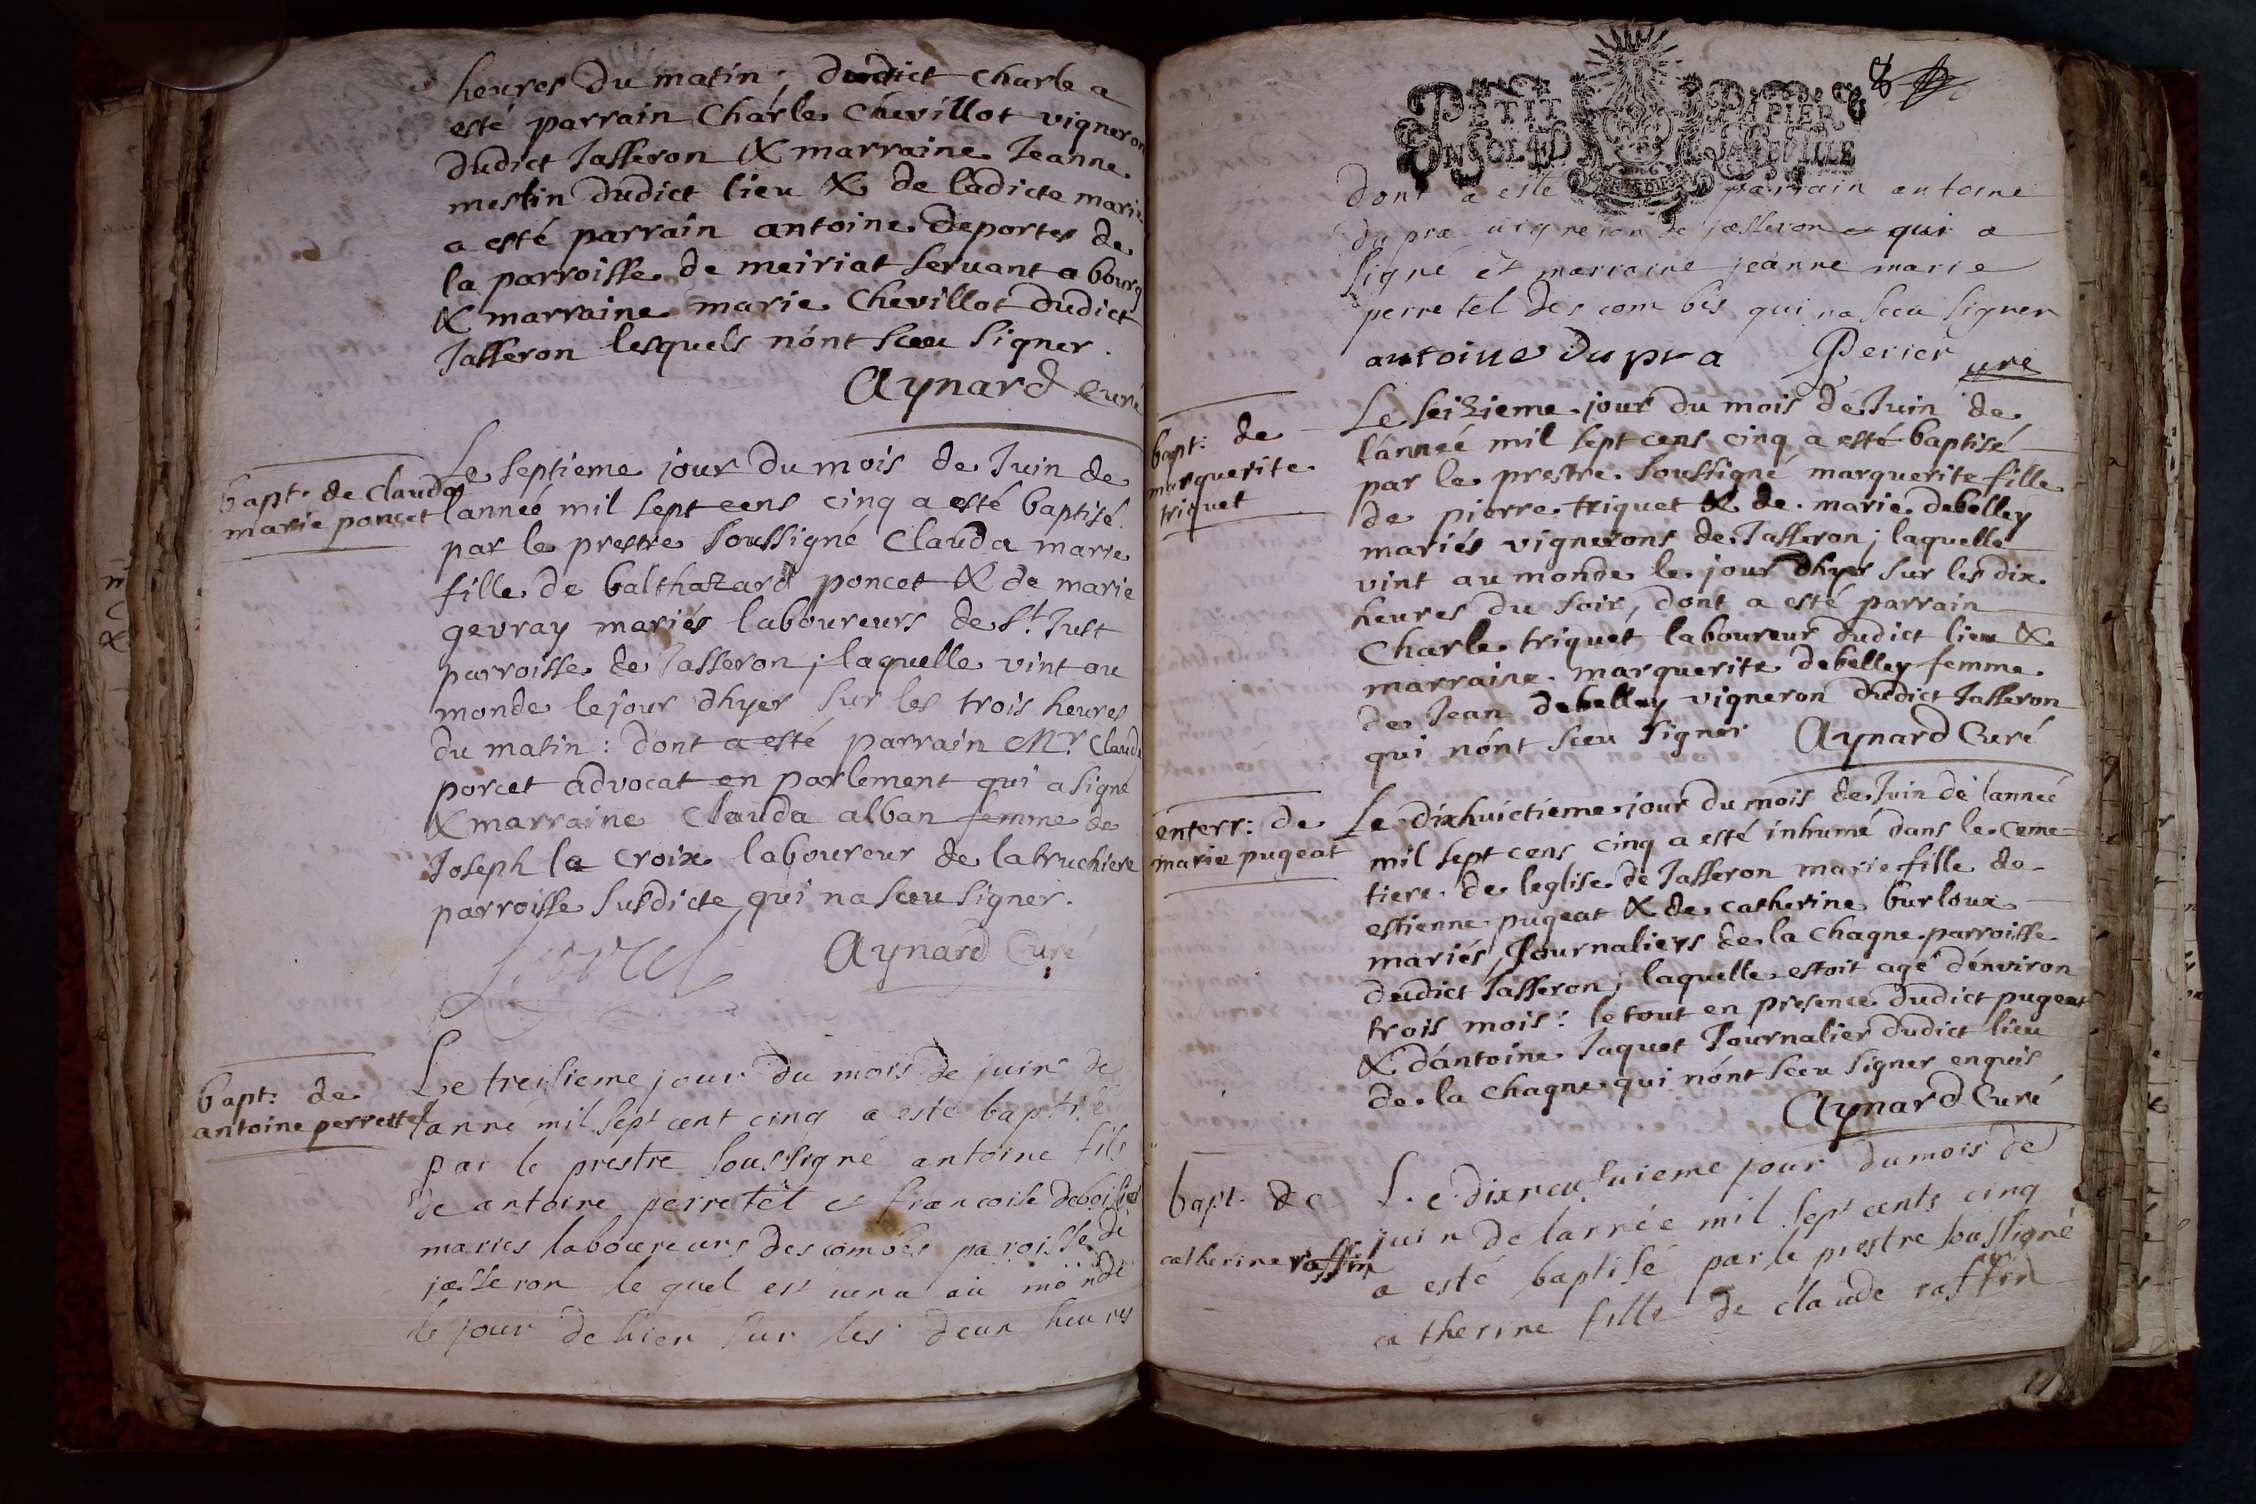 heures du matin; dudict Charle a
esté parrain Charle Chevillot vigneron
dudict Jasseron & marraine Jeanne
meslin dudict lieu & de ladicte marie
a esté parrain antoine deportes de
la parroisse de meiriat servant a bourg
& marraine marie Chevillot dudict
Jasseron lesquels n'ont sceu signer.
Aynard Curé
bapt: de clauda
marie poncet
Le septieme jour du mois de Juin de
lanneé mil sept cens cinq a esté baptisé
par le prestre soussigné Clauda marie
fille de balthazard poncet & de marie
gevray mariés laboureurs de St. Just
parroisse de Jasseron; laquelle vint au
monde le jour dhyer sur les trois heures
du matin: dont a esté parrain Mr. Claude
porcet advocat en parlement qui a signé
& marraine Clauda alban femme de
Joseph la Croix laboureur de latruchiere
parroisse susdicte qui na sceu signer.
Aynard Curé
bapt: de
antoine perrettel
Le treisieme jour du mois de juin de
lanné mil sept cent cinq a esté baptisé
par le prestre soussigné antoine fils
de antoine perretel et francoise
maries laboureurs des combes paroisse de
jasseron le quel est venu au monde
le jour de hier sur les deux heures
PETIT PAPIER
8
dont a esté parrain antoine
dupra vigneron de jasseron et qui a
signé et marraine jeanne marie
perretel des combes qui na sceu signer
antoine dupra Perier
bapt: de
marguerite
triquet
Le seizieme jour du mois de Juin de
lanneé mil sept cens cinq a esté baptisé
par le prestre soussigné marguerite fille
de pierre triquet & de marie debelley
mariés vignerons de Jasseron; laquelle
vint au monde le jour dhyer sur les dix
heures du soir, dont a esté parrain
Charle triquet laboureur dudict lieu &
marraine marguerite debelley femme
de Jean debelley vigneron dudict Jasseron
qui n'ont sceu signer Aynard Curé
enterr: de
marie pugeat
Le dixhuictieme jour du mois de Juin de lanneé
mil sept cens cinq a esté inhumé dans le ceme-
tiere de leglise de Jasseron marie fille de
estienne pugeat & de catherine burloux
mariés Journaliers de la Chagne parroisse
dudict Jasseron; laquelle estoit agé d'environ
trois mois: le tout en presence dudict pugeat
& d'antoine Jaquet Journalier dudict lieu
de la Chagne qui n'ont sceu signer enquis
Aynard Curé
bapt. de
catherine raffin
Le dixneufvieme jour du mois de
juin de lannée mil sept cents cinq
a esté baptisé par le prestre soussigné
catherine fille de claude raffin